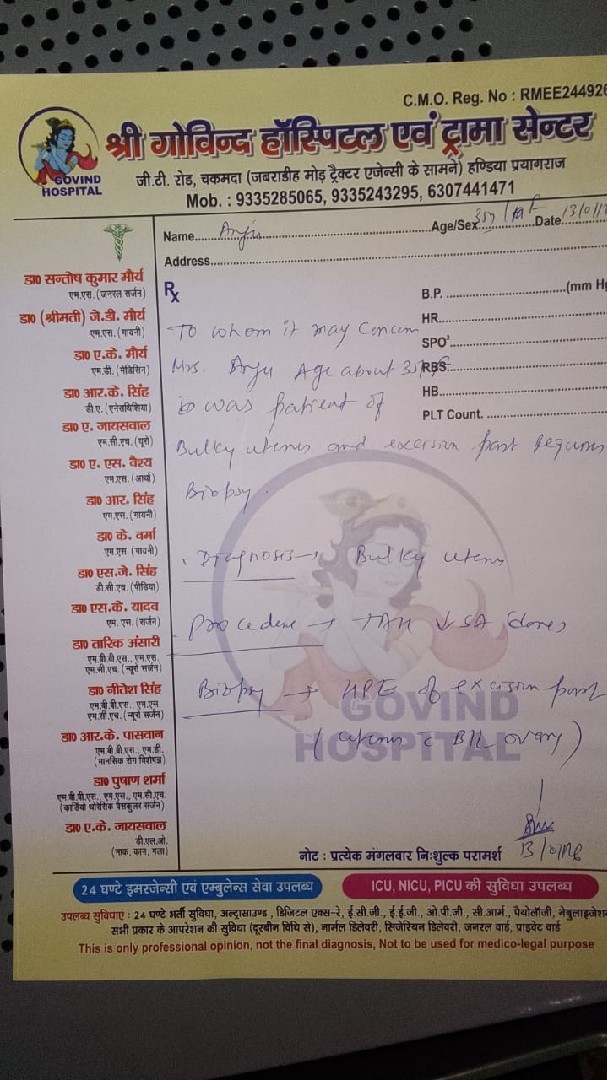 C.M.O. Reg. No : RMEE244926
श्री गोविन्द हॉस्पिटल एवं ट्रामा सेन्टर
GOVIND
HOSPITAL
जी.टी. रोड, चकमदा (जबराडीह मोड़ ट्रैक्टर एजेन्सी के सामने) हण्डिया प्रयागराज
Mob. : 9335285065, 9335243295, 6307441471
Name Anju Age/Sex Date
Address
Rx
B.P. (mm Hg
HR
SPO²
RBS
HB
PLT Count.
डा० सन्तोष कुमार मौर्य
एम.एस. (जनरल सर्जन)
डा० (श्रीमती) जे.डी. मौर्य
एम.एस. (गायनी)
डा० ए.के. मौर्य
एम.डी. (मेडिसिन)
डा० आर.के. सिंह
डी.ए. (एनेस्थिशिया)
डा० ए. जायसवाल
एम.सी.एच. (यूरो)
डा० ए. एस. वैश्य
एम.एस. (आर्थो)
डा० आर. सिंह
एम.एस. (गायनी)
डा० के. वर्मा
एम.एस (गायनी)
डा० एस.जे. सिंह
डी.सी.एच. (पीडिया)
डा० एस.के. यादव
एम. एस. (सर्जन)
डा० तारिक अंसारी
एम.बी.बी.एस., एम.एस.
एम.सी.एच. (न्यूरो सर्जन)
डा० नीतेश सिंह
एम.बी.बी.एस., एम.एस
एम.सी.एच. (न्यूरो सर्जन)
डा० आर.के. पासवान
एम.बी.बी.एस., एम.डी.
(मानसिक रोग विशेषज्ञ)
डा० पुषाण शर्मा
एम.बी.बी.एस., एम.एस., एम.सी.एच.
डा० ए.के. जायसवाल
डी.एल.ओ.
(नाक, कान, गला)
To whom it may Concern
Mrs. Anju Age about
was patient of
Bulky uterus and excision part requires
Biopsy.
Diagnosis → Bulky uterus
Procedure → TAH ↓ SA
Biopsy → HPE of excision part
(uterus c B/L ovary)
GOVIND
HOSPITAL
नोट : प्रत्येक मंगलवार निःशुल्क परामर्श
24 घण्टे इमरजेन्सी एवं एम्बुलेन्स सेवा उपलब्ध
ICU, NICU, PICU की सुविधा उपलब्ध
उपलब्ध सुविधाए : 24 घण्टे भर्ती सुविधा, अल्ट्रासाउण्ड, डिजिटल एक्स-रे, ई.सी.जी., ई.ई.जी., ओ.पी.जी., सी.आर्म., पैथोलॉजी, नेबुलाइजेशन
सभी प्रकार के आपरेशन की सुविधा (दूरबीन विधि से), नार्मल डिलेवरी, सिजेरियन डिलेवरी, जनरल वार्ड, प्राइवेट वार्ड
This is only professional opinion, not the final diagnosis, Not to be used for medico-legal purpose